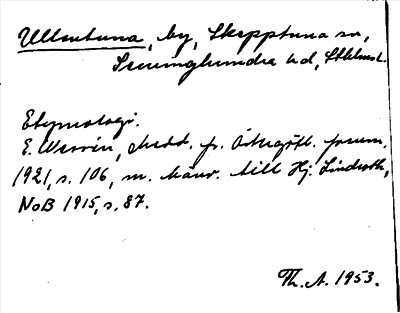 Ullentuna, by, Skepptuna sn,
Seminghundra hd, Sthlms l.
Etymologi.
E. Wessén, Medd. fr. Östergötl. fornm.
1921, s. 106, m. hänv. till Hj. Lindroth,
NoB 1915, s. 87.
Th. A. 1953.